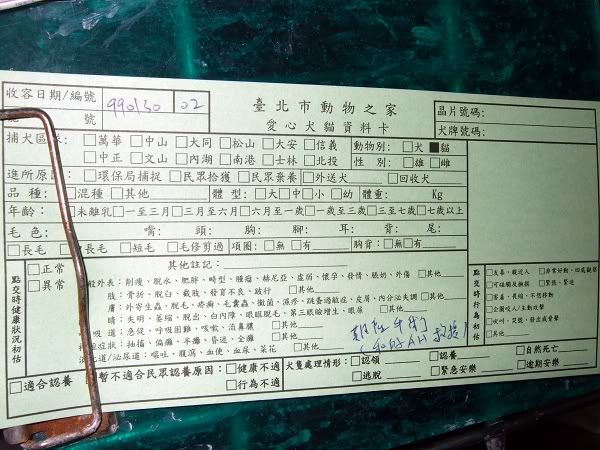 收容日期/編號 990130 02 臺北市動物之家 晶片號碼:
號 愛心犬貓資料卡 犬牌號碼:
捕犬區 □萬華 □中山 □大同 □松山 □大安 □信義 動物別: □犬 ■貓
□中正 □文山 □內湖 □南港 □士林 □北投 性別: □雄 □雌
進所原因: □環保局捕捉 □民眾拾獲 □民眾棄養 □外送犬 □回收犬
品種: □混種 □其他 體型: □大 □中 □小 □幼 體重: Kg
年齡: □未離乳 □一至三月 □三月至六月 □六月至一歲 □一歲至三歲 □三至七歲 □七歲以上
毛色: 嘴: 頭: 胸: 腳: 耳: 背: 尾:
□長毛 □長毛 □短毛 □毛修剪過 項圈: □無 □有 胸背: □無 □有
點交時健康狀況初估 □正常 □異常
其他註記:
般外表: 削瘦、脫水、脫胖、畸型、腫瘤、赫尼亞、虛弱、懷孕、發情、脹奶、外傷 □其他
肢: 骨折、脫臼、截肢、發育不良、跛行 □其他
膚: 外寄生蟲、脫毛、疥癬、毛囊蟲、黴菌、濕疹、跳蚤過敏症、皮屑、內分泌失調 □其他
睛: 失明、萎縮、脫出、白內障、眼瞼脫毛、第三眼瞼增生、眼屎 □其他
吸道: 急促、呼吸困難、咳嗽、流鼻膿 □其他
經症狀: 抽搐、偏癱、半癱、昏迷、全癱 □其他
消化道/泌尿道: 嘔吐、腹瀉、血便、血尿、菜花 □其他
點交時行為初估
□友善、親近人 □非常好動、四處觀察
□可碰觸及撫摸 □緊張、緊迫
□害羞、畏縮、不想移動
□企圖咬人/主動攻擊
□吠叫、哭號、發出威脅聲
□其他
□適合認養 □暫不適合民眾認養原因: □健康不適 □行為不適
犬隻處理情形: □認領 □認養 □自然死亡
□逃脫 □緊急安樂 □逾期安樂